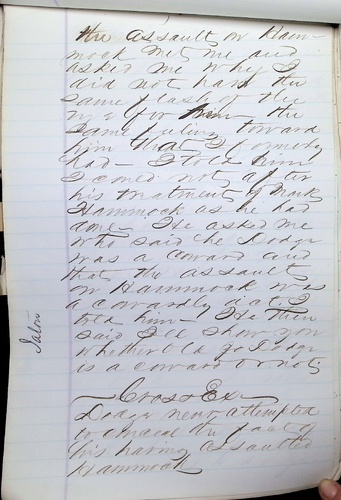 the assault on Ham-
mock met me and
asked me why I
did not have the
same
for him the
same feeling toward
him that I formerly
had - I told him
I could not after
his treatment of Mark
Hammock as he had
done. He asked me
who said he Dodge
was a coward and
that the assault
on Hammock was
a cowardly act. I
told him - He then
said I'll show you
whether Old Dodge
is a coward or not
Cross Ex
Dodge never attempted
to conceal the fact of
his having assaulted
Hammock